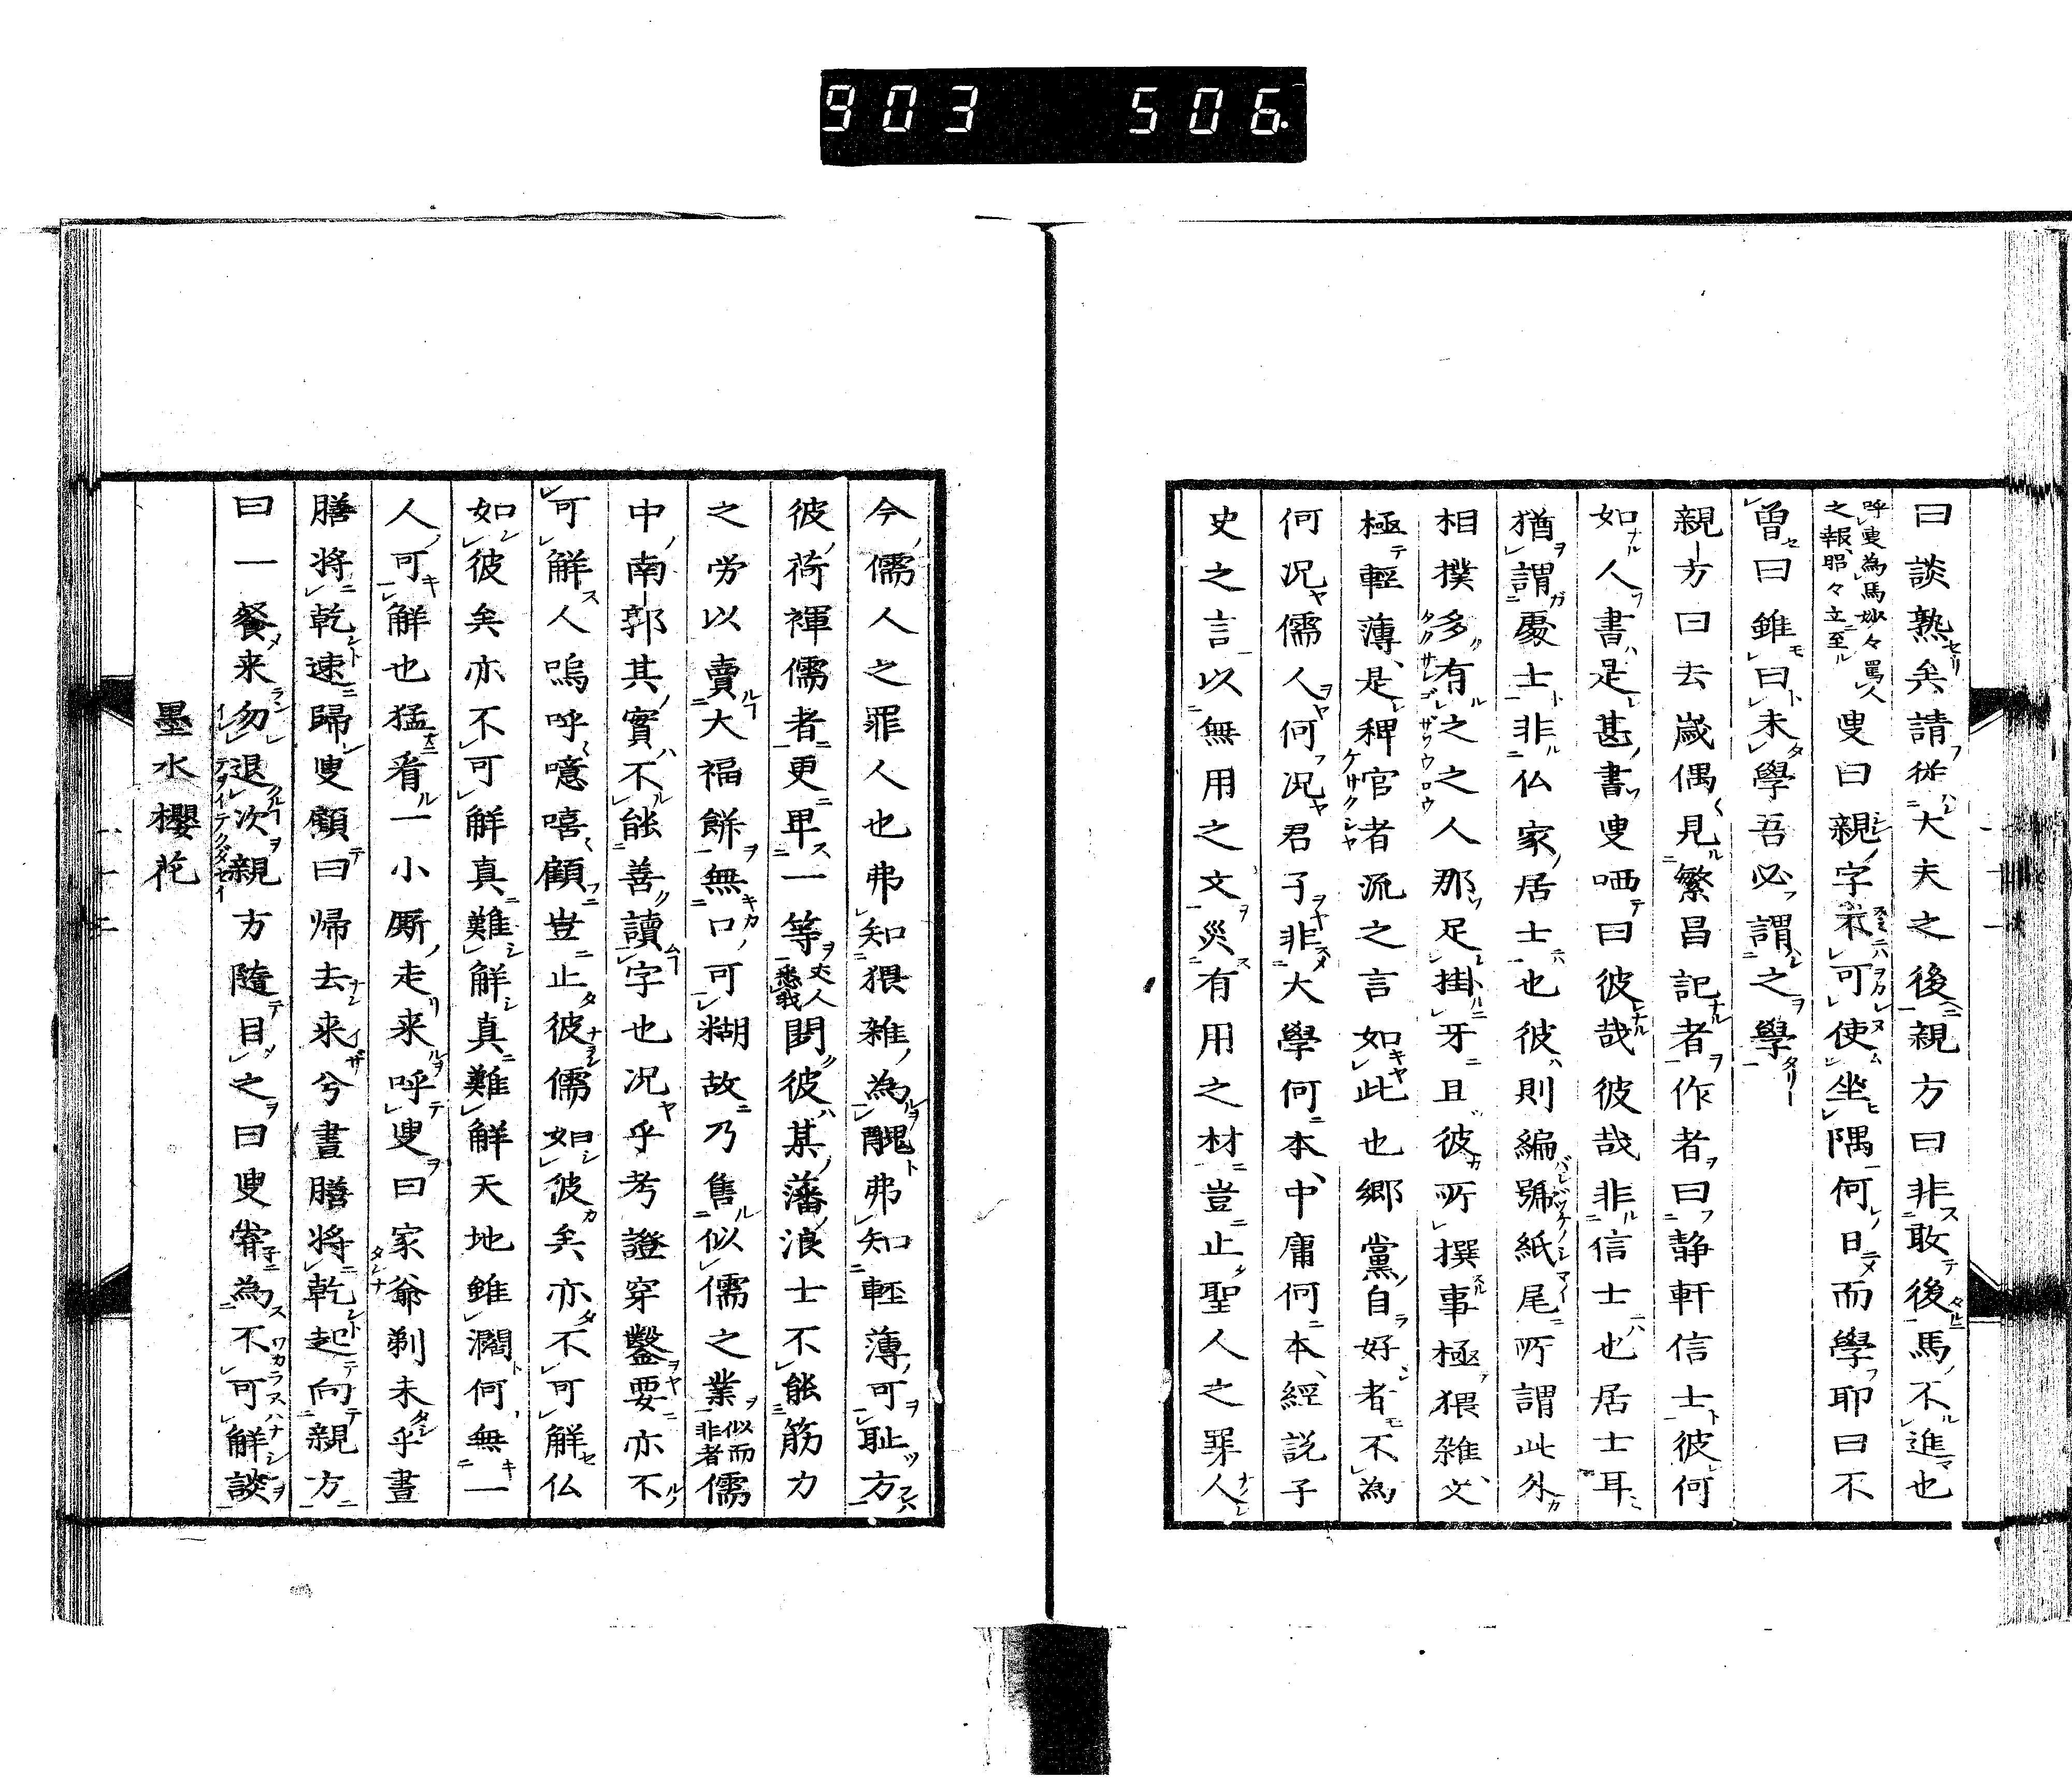 903 506
曰談熟矣請従大夫之後親方曰非敢後馬不進也
呼叟為馬妙々罵人之報昭々立至叟曰親字不可使坐隅何日而學耶曰不
曽曰雖曰未學吾必謂之學
親方曰去嵗偶見繁昌記者作者曰静軒信士彼何
如人書是甚書叟哂曰彼哉彼哉非信士也居士耳
猶謂處士非仏家居士也彼則編號紙尾所謂此外
相撲多有之之人那足掛牙且彼所撰事極猥雜文
極輕薄是稗官者流之言如此也郷黨自好者不為
何况儒人何况君子非大學何本中庸何本經説子
史之言以無用之文災有用之材豈止聖人之罪人
今儒人之罪人也弗知猥雜為醜弗知輕薄可耻方
彼荷褌儒者更卑一等夫人悉我聞彼某藩浪士不能筋力
之労以賣大福餅無口可糊故乃售似儒之業似而非者儒
中南郭其實不能善讀字也况乎考證穿鑿要亦不
可解人嗚呼噫嘻顧豈止彼儒如彼矣亦不可解仏
如彼矣亦不可解真難解真難解天地雖濶何無一
人可解也猛看一小厮走来呼叟曰家爺剃未乎晝
膳将乾速歸叟顧曰帰去来兮晝膳将乾起向親方
曰一餐来勿退次親方随目之曰叟寄為不可解談
墨水櫻花